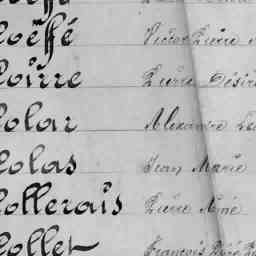 Coëffé Victor Pierre
Coirre Pierre Désiré
Colar Alexandre
Colas Jean Marie
Collerais Pierre Aimé
Collet François René